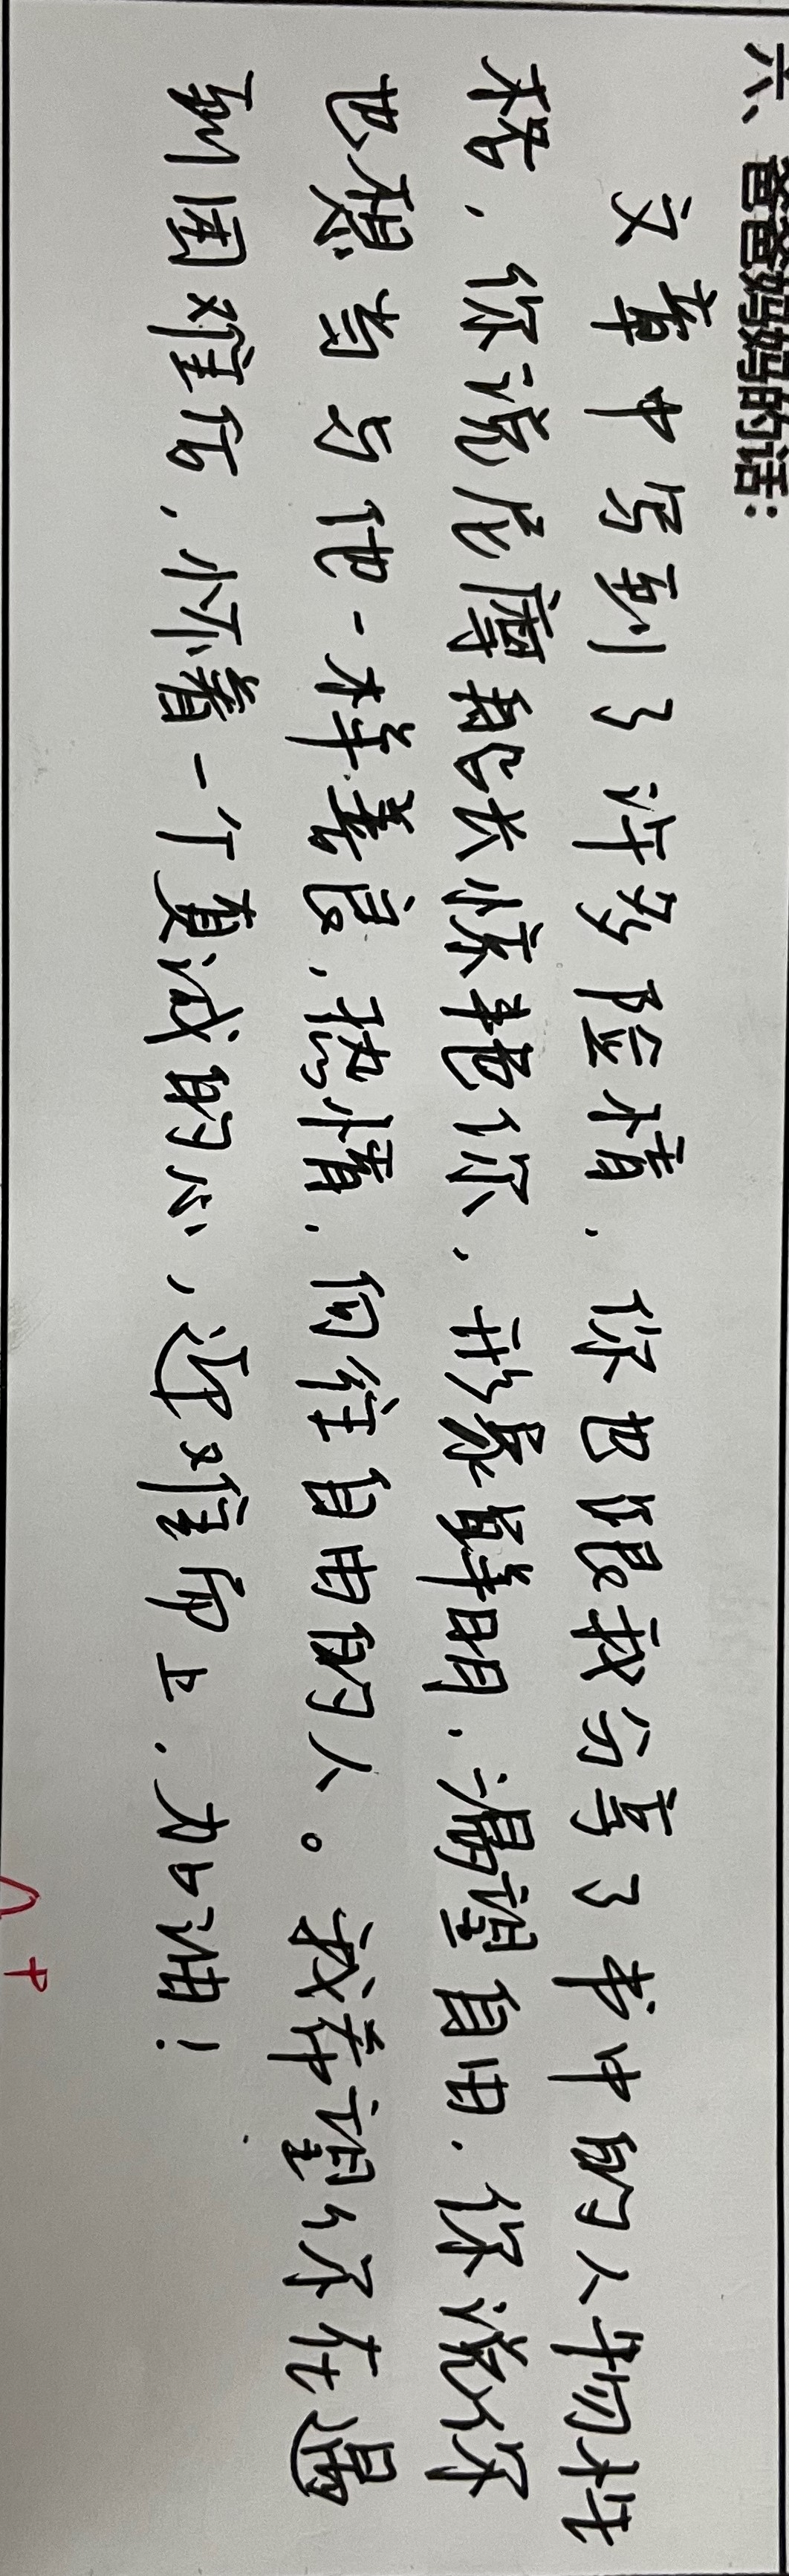 六、爸爸妈妈的话:
文章中写到了许多险情,你也跟我分享了书中的人物性
格,你说尼摩船长惊艳你,形象鲜明,渴望自由,你说你
也想当与他一样善良,热情,向往自由的人。我希望你在遇
到困难,怀着一个真诚的心,迎难而上,加油!
A+